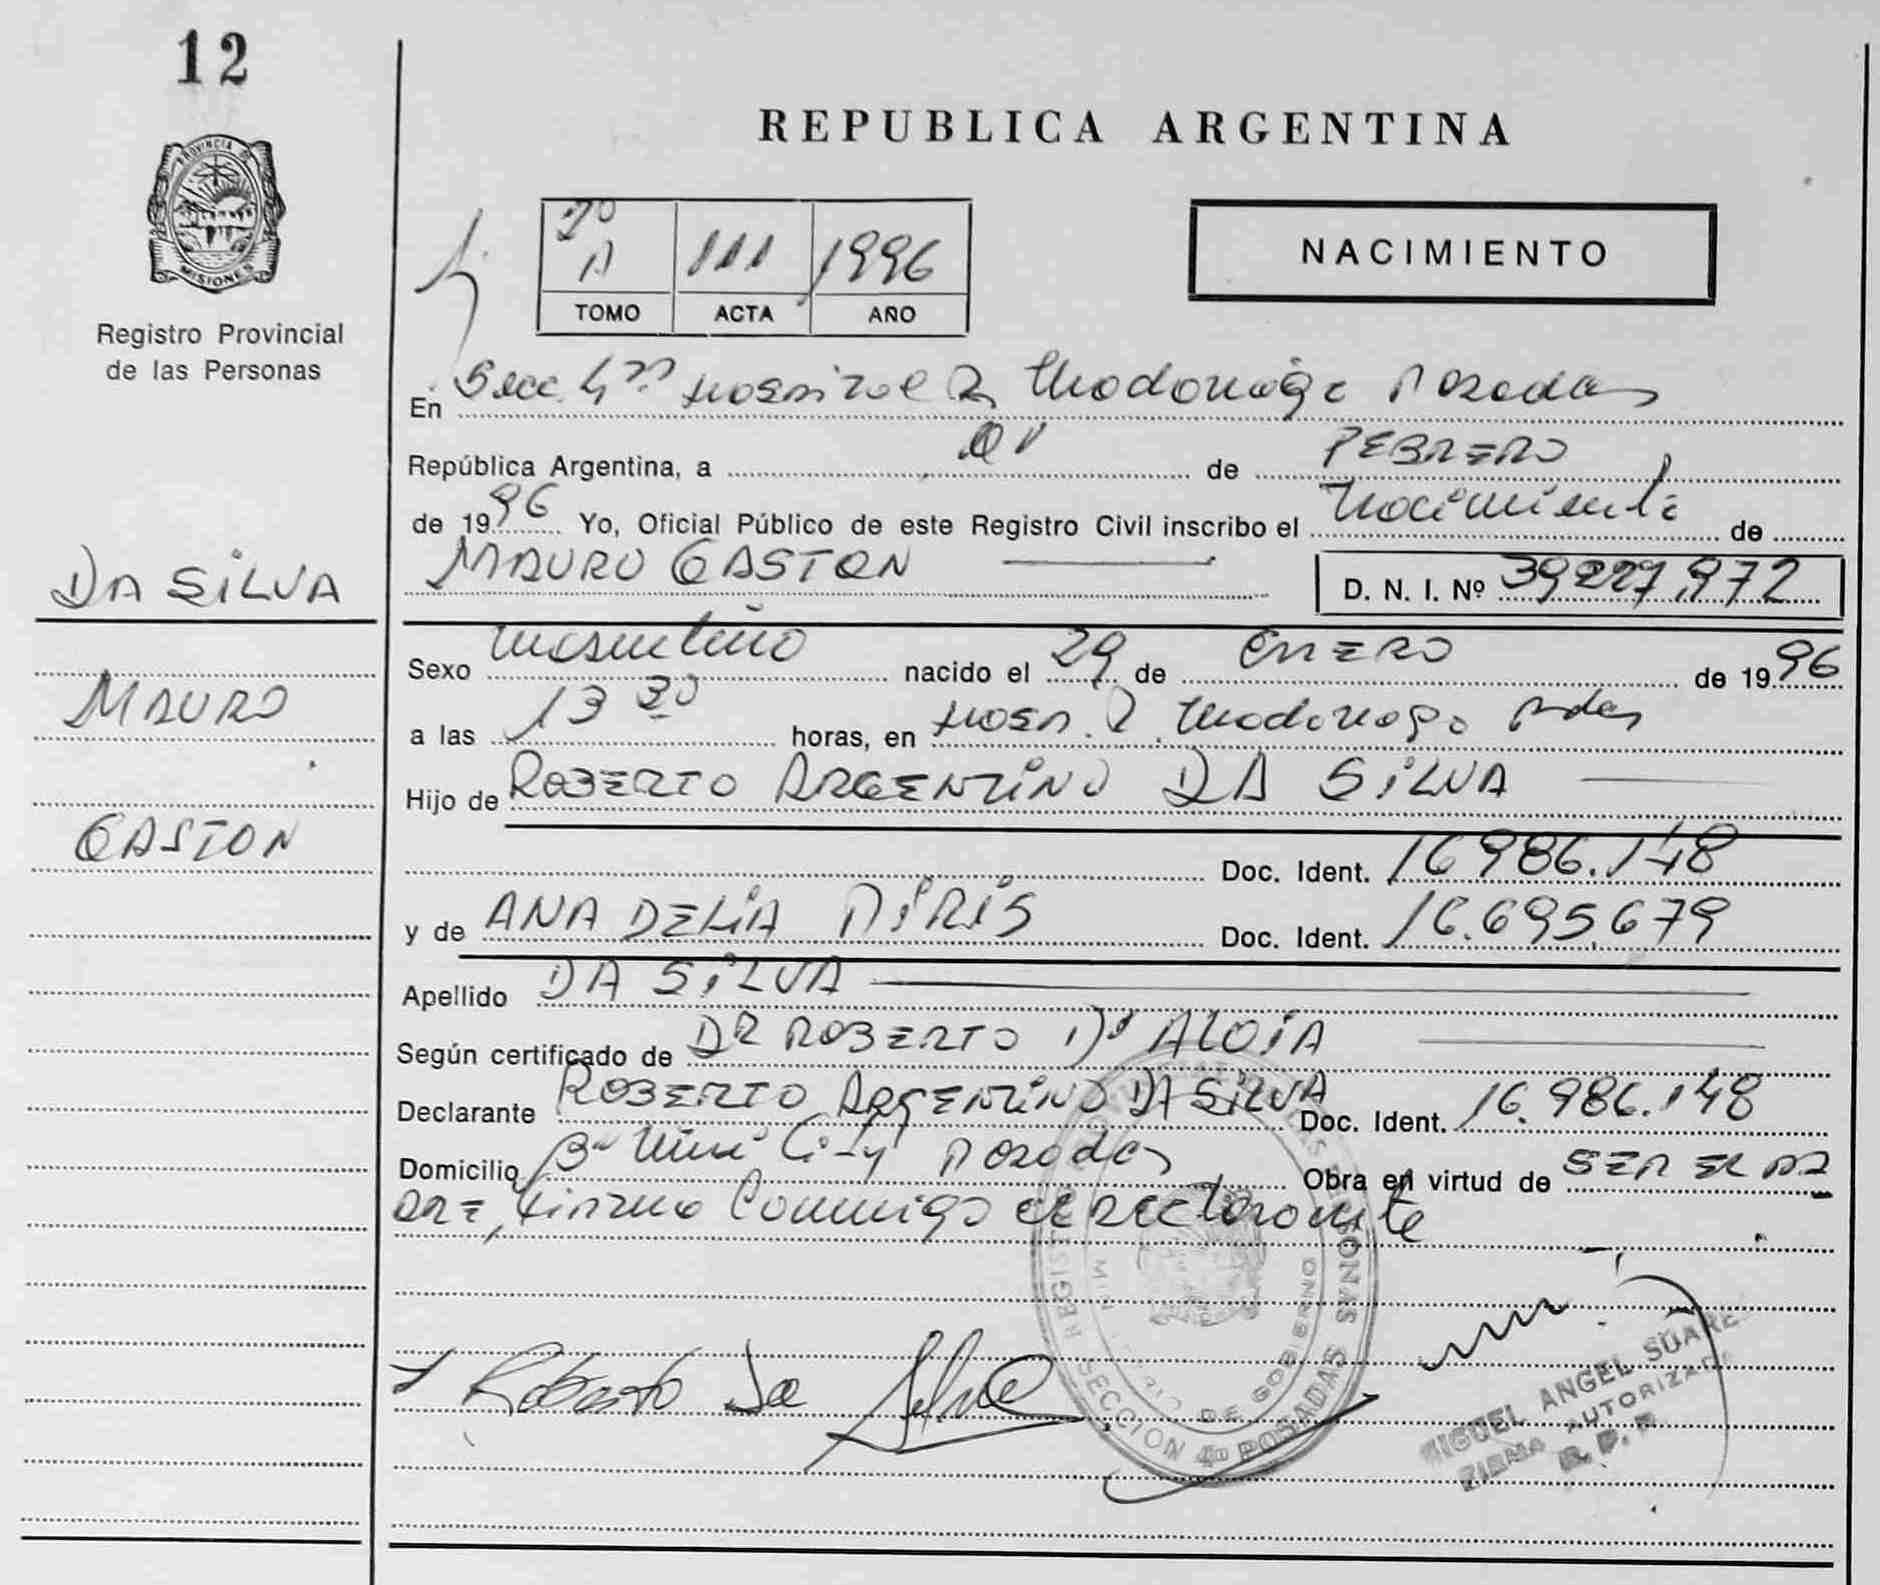 12
PROVINCIA DE
MISIONES
Registro Provincial
de las Personas
REPUBLICA ARGENTINA
NACIMIENTO
2º A 111 1996
TOMO ACTA AÑO
En Secc. 4ta Hospital R. Madariaga Posadas
República Argentina, a 01 de FEBRERO
de 1996 Yo, Oficial Público de este Registro Civil inscribo el Nacimiento de
MAURO GASTON D. N. I. Nº 39.227.972
DA SILVA
MAURO
GASTON
Sexo masculino nacido el 29 de ENERO de 1996
a las 13 30 horas, en Hosp. R. Madariaga Pdas
Hijo de ROBERTO ARGENTINO DA SILVA
Doc. Ident. 16.986.148
y de ANA DELIA Doc. Ident. 16.695.679
Apellido DA SILVA
Según certificado de DR ROBERTO D'ALOIA
Declarante ROBERTO ARGENTINO DA SILVA Doc. Ident. 16.986.148
Domicilio Bº Mini City Posadas Obra en virtud de SER EL PA
DRE, firma conmigo el declarante
Roberto Da Silva
SECCION 4º POSADAS
DE GOBIERNO
MIGUEL ANGEL SUAREZ
FIRMA AUTORIZADA
R. P. P.